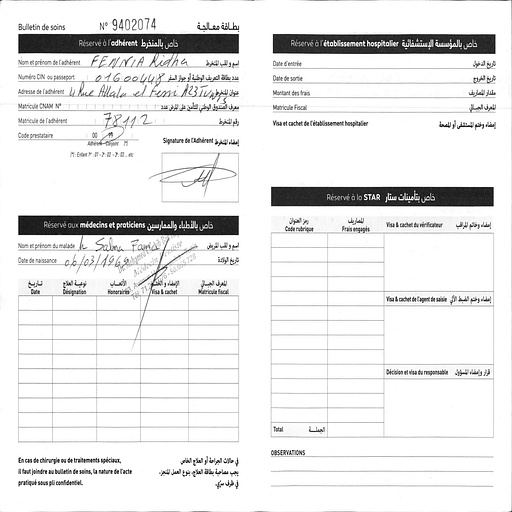 Bulletin de soins N° 9402074 بطاقة معالجة
Réservé à l'adhérent خاص بالمنخرط
Nom et prénom de l'adhérent FENNIA Ridha اسم و لقب المنخرط
Numéro CIN ou passeport 01600448 عدد بطاقة التعريف الوطنية أو جواز السفر
Adresse de l'adhérent 4 Rue Allala el Fessi عنوان المنخرط
Matricule CNAM N° معرف الصندوق الوطني للتأمين على المرض عدد
Matricule de l'adhérent 78112 رقم المنخرط
Code prestataire 00 99
Adhérent Conjoint (*)
(*) : Enfant 1er : 01 - 2e : 02 - 3e : 03 .. etc
Signature de l'Adhérent إمضاء المنخرط
Réservé aux médecins et praticiens خاص بالأطباء والممارسين
Nom et prénom du malade اسم و لقب المريض
Date de naissance 06/03/1969 تاريخ الولادة
تاريخ نوعية العلاج الأتعاب الإمضاء و الختم المعرف الجبائي
Date Désignation Honoraires Visa & cachet Matricule fiscal
En cas de chirurgie ou de traitements spéciaux,
il faut joindre au bulletin de soins, la nature de l'acte
pratiqué sous pli confidentiel.
في حالات الجراحة أو العلاج الخاص
يجب مصاحبة بطاقة العلاج، بنوع العمل المنجز،
في ظرف سري.
Réservé à l'établissement hospitalier خاص بالمؤسسة الإستشفائية
Date d'entrée تاريخ الدخول
Date de sortie تاريخ الخروج
Montant des frais مقدار المصاريف
Matricule Fiscal المعرف الجبائي
Visa et cachet de l'établissement hospitalier إمضاء وختم المستشفى أو المصحة
Réservé à la STAR خاص بتأمينات ستار
رمز العنوان المصاريف
Code rubrique Frais engagés
Visa & cachet du vérificateur إمضاء وخاتم المراقب
Visa & cachet de l'agent de saisie إمضاء وختم الضبط الآلي
Décision et visa du responsable قرار وإمضاء المسؤول
Total الجملة
OBSERVATIONS